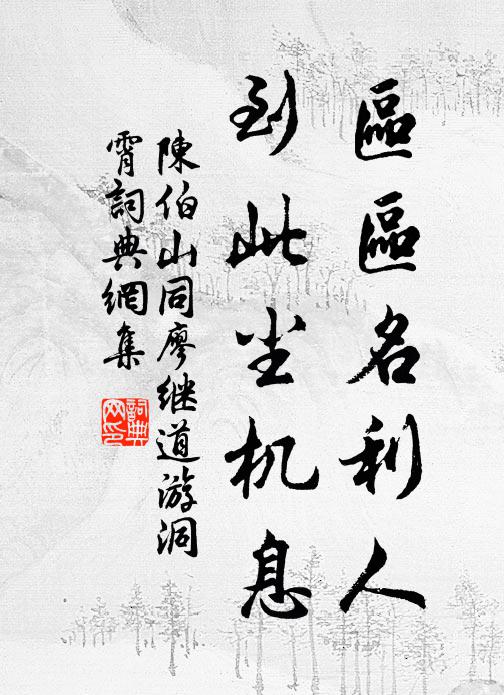 區區名利人
到此尘机息
陳伯山同廖继道游洞
霄詞典網集
詞典
网印